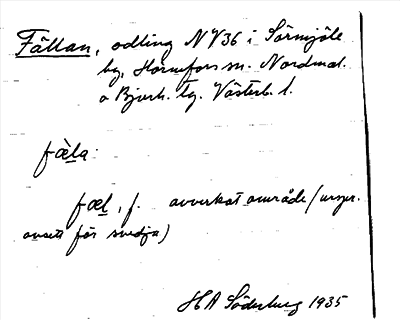 Fällan, odling NV36 i Sörmjöle
by, Hörnefors sn. Nordmal.
o Bjurh. tg. Västerb. l.
fæ̀la:
fæl, f. avverkat område (urspr.
avsett för svedja)
HA Söderberg 1935